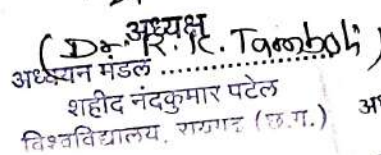 अध्यक्ष
(Dr. R. K. Tamboli)
अध्ययन मंडल ..................
शहीद नंदकुमार पटेल
विश्वविद्यालय, रायगढ़ (छ.ग.)